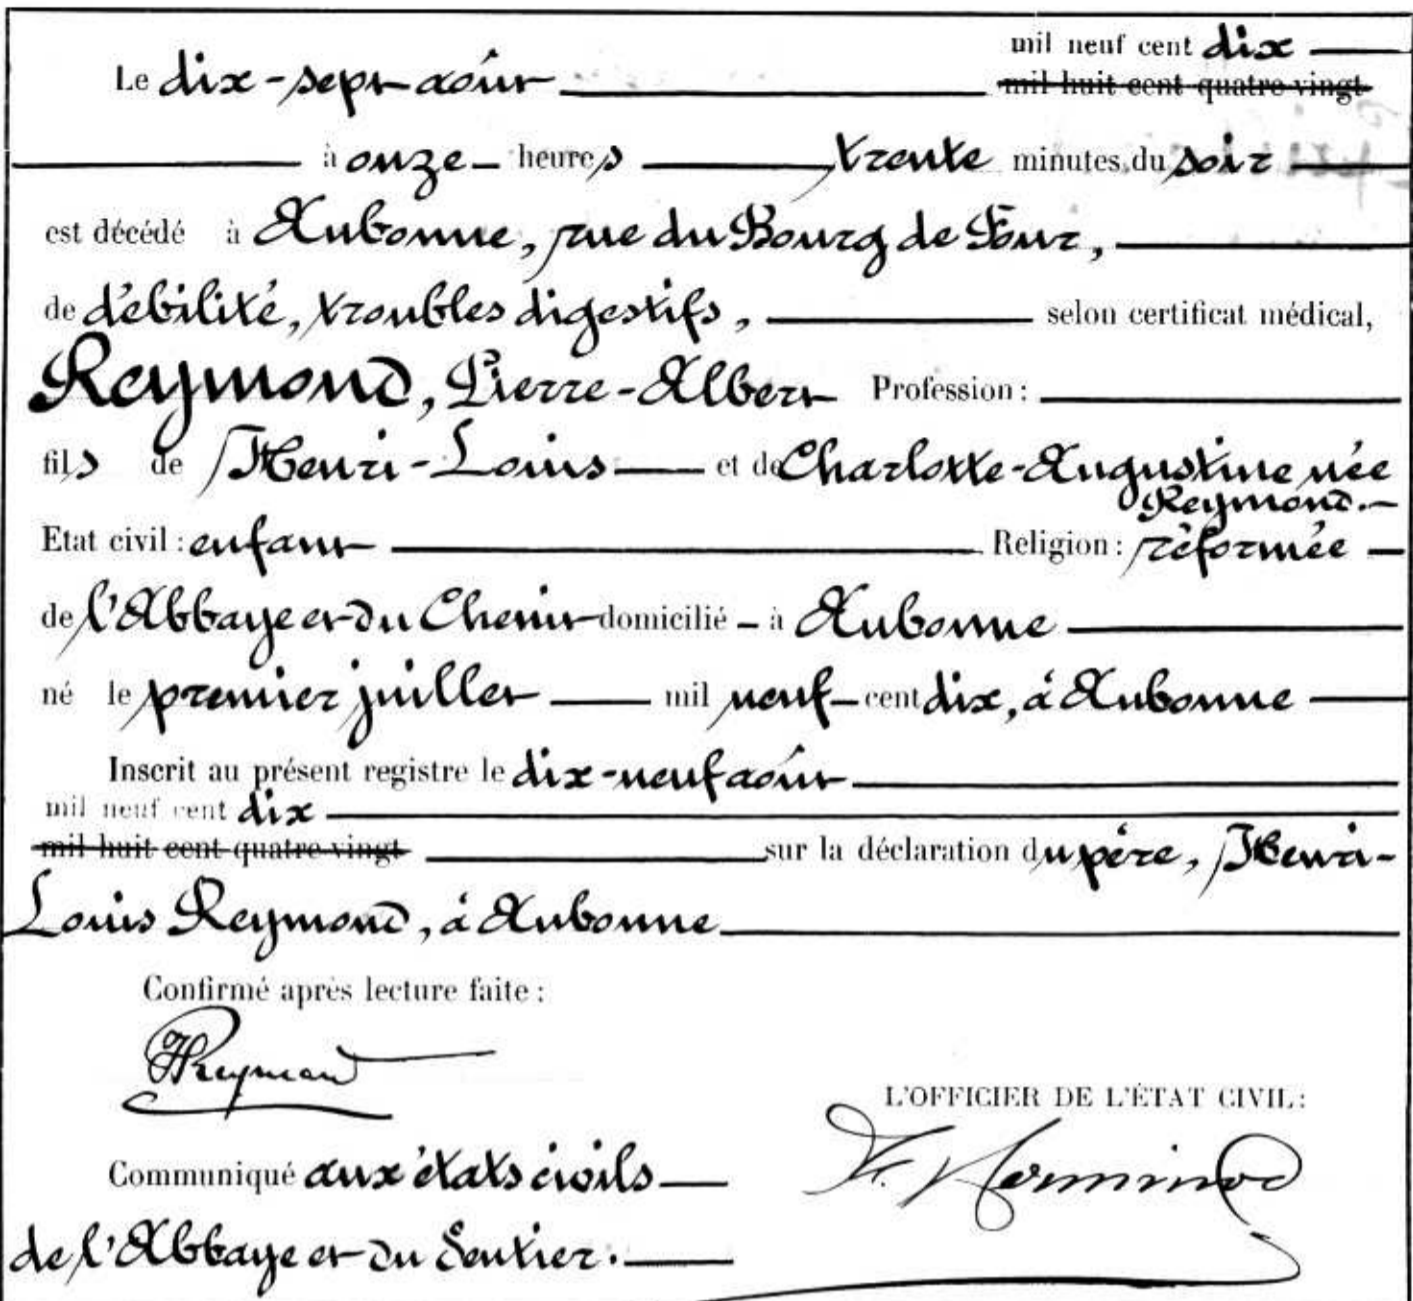 mil neuf cent dix
Le dix-sept août mil huit cent quatre vingt
à onze heures trente minutes du soir
est décédé à Aubonne, rue du Bourg de Four,
de débilité, troubles digestifs, selon certificat médical,
Reymond, Pierre-Albert Profession:
fils de Henri-Louis et de Charlotte-Augustine née
Reymond.
Etat civil: enfant Religion: réformée
de l'Abbaye et du Chenit domicilié à Aubonne
né le premier juillet mil neuf cent dix, à Aubonne
Inscrit au présent registre le dix-neuf août
mil neuf cent dix
mil huit cent quatre vingt sur la déclaration du père, Henri-
Louis Reymond, à Aubonne
Confirmé après lecture faite:
HReymond
L'OFFICIER DE L'ÉTAT CIVIL:
Communiqué aux états civils
de l'Abbaye et du Sentier.